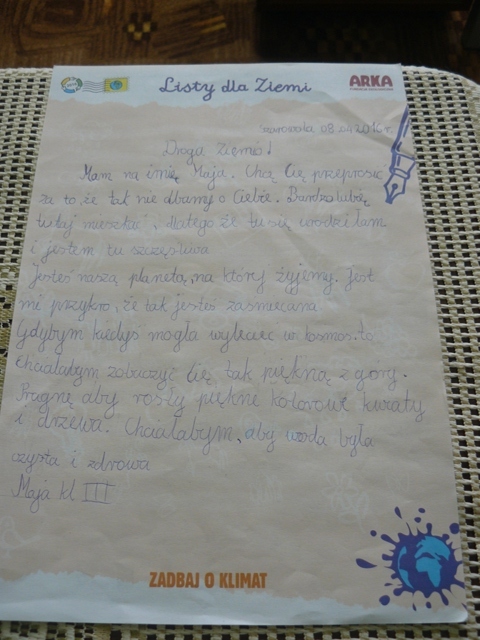 Listy dla Ziemi
ARKA
08.04.2016 r.
Droga Ziemio!
Mam na imię Maja. Chcę Cię przeprosić
za to, że tak nie dbamy o Ciebie. Bardzo lubię
tutaj mieszkać, dlatego że tu się urodziłam
i jestem tu szczęśliwa
Jesteś naszą planetą, na której żyjemy. Jest
mi przykro, że tak jesteś zaśmiecana
Gdybym kiedyś mogła wylecieć w kosmos to
chciałabym zobaczyć Cię tak piękną z góry.
Pragnę aby rosły piękne kolorowe kwiaty
i drzewa. Chciałabym, aby woda była
czysta i zdrowa
Maja kl III
ZADBAJ O KLIMAT